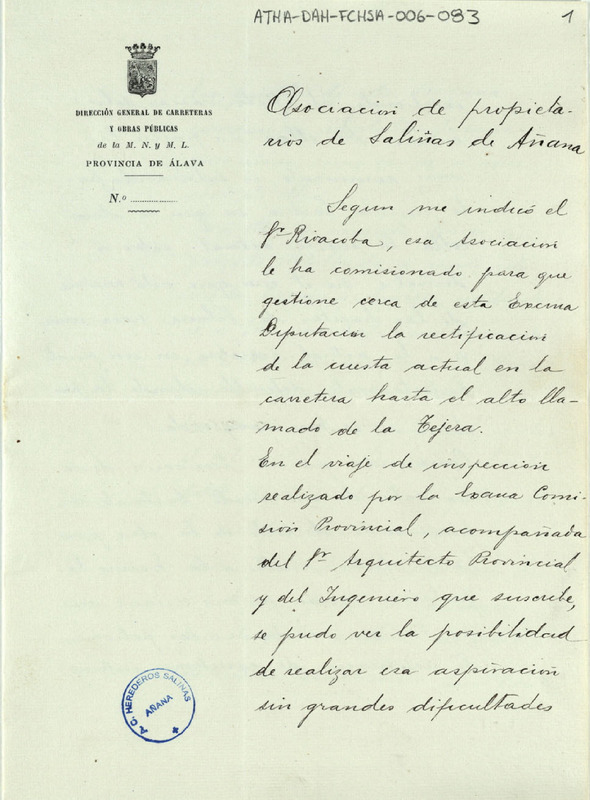 ATHA-DAH-FCHSA-006-083
1
DIRECCIÓN GENERAL DE CARRETERAS
Y OBRAS PÚBLICAS
de la M. N. y M. L.
PROVINCIA DE ÁLAVA
N.º
Asociacion de propieta-
rios de Saliñas de Añana
Segun me indicó el
Sr Rivacoba, esa Asociacion
le ha comisionado para que
gestione cerca de esta Excma
Diputacion la rectificacion
de la cuesta actual en la
carretera hasta el alto lla-
mado de la Tejera.
En el viaje de inspeccion
realizado por la Exana Comi-
sión Provincial, acompañada
del Sr Arquitecto Provincial
y del Ingeniero que suscribe,
se pudo ver la posibilidad
de realizar esa aspiración
sin grandes dificultades
A. C. HEREDEROS SALINAS
AÑANA